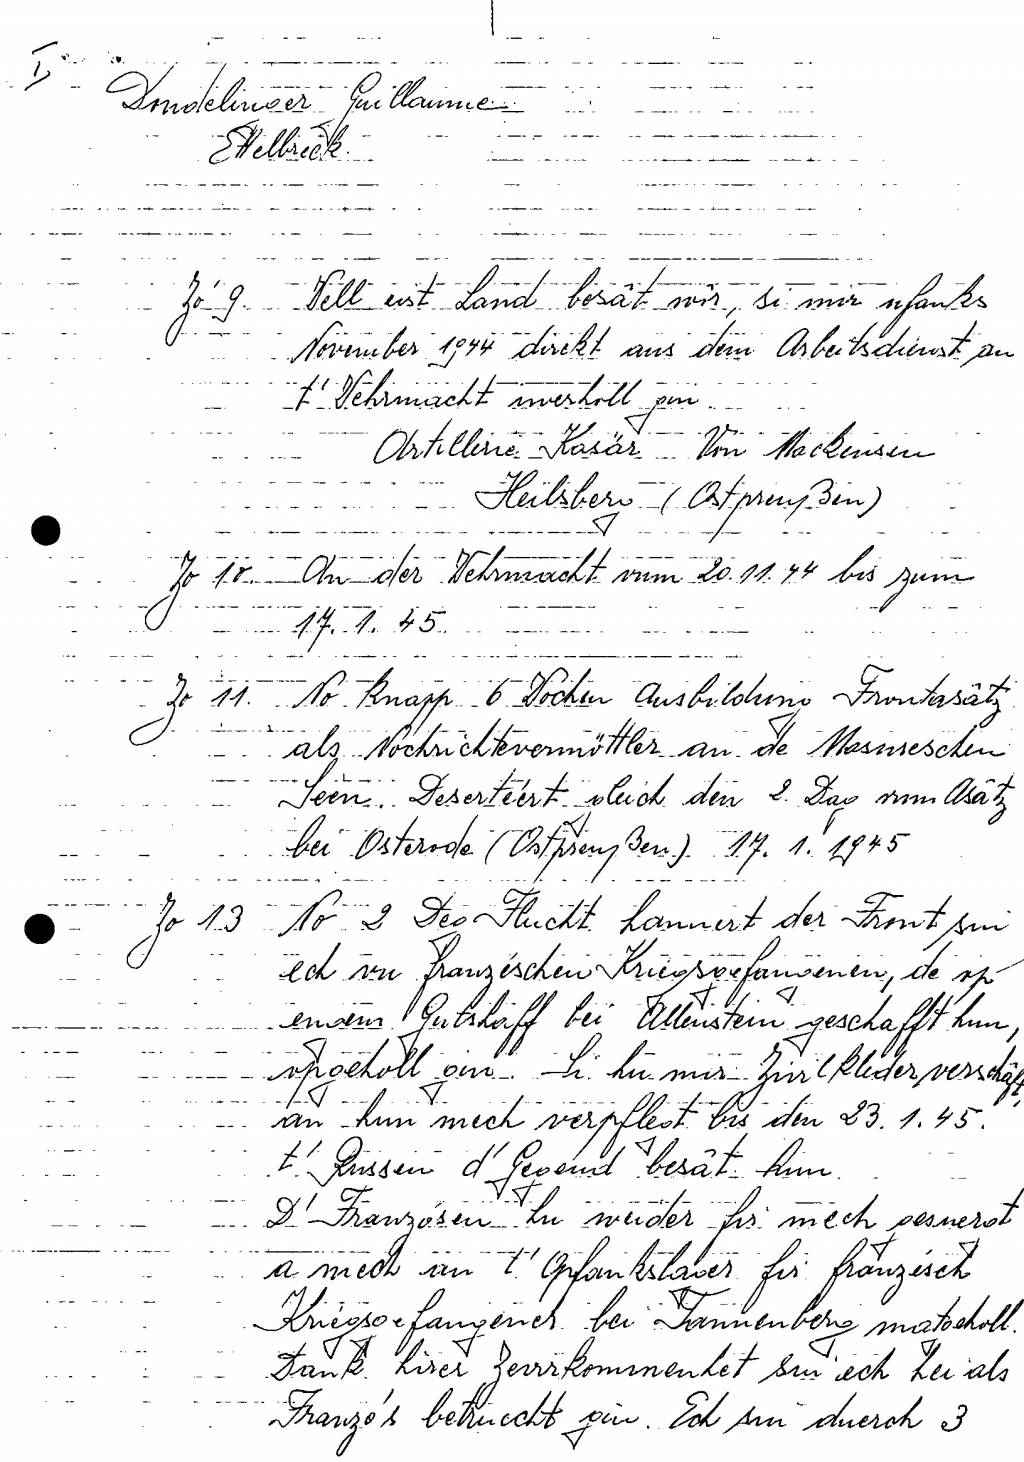 I,
Dondelinger Guillaume
Ettelbréck.
Zo' 9. Well eist Land besät wir, si mir ufanks
November 1944 direkt aus dem Arbeitsdienst an
t' Wehrmacht iwerholl gin
Artillerie Kasär Von Mackensen
Heilsberg (Ostpreußen)
Zo 10. An der Wehrmacht vum 20.11.44 bis zum
17. 1. 45.
Zo 11. No knapp 6 Wochen Ausbildung Frontasätz
als Nochrichtevermöttler an de Masureschen
Seen. Desertéert gleich den 2. Dag vum Asätz
bei Osterode (Ostpreußen) 17. 1. 1945
Zo 13 No 2 Deg Flucht hannert der Front sin
ech vu franzéschen Kriegsgefangenen, de op
engem Gutshaff bei Allenstein geschafft hun,
opgeholl gin. Si hu mir Zivilkleder verschäft,
an hun mech verpflegt bis den 23. 1. 45.
t' Russen d' Gegend besät hun.
D' Franzósen hu weider fir mech gesuergt
a mech an t' Opfankslager fir franzésch
Kriegsgefangener bei Tannenberg matgeholl.
Dank hirer Zevirkommenhet sin ech hei als
Franzo's betruecht gin. Ech sin duerch 3